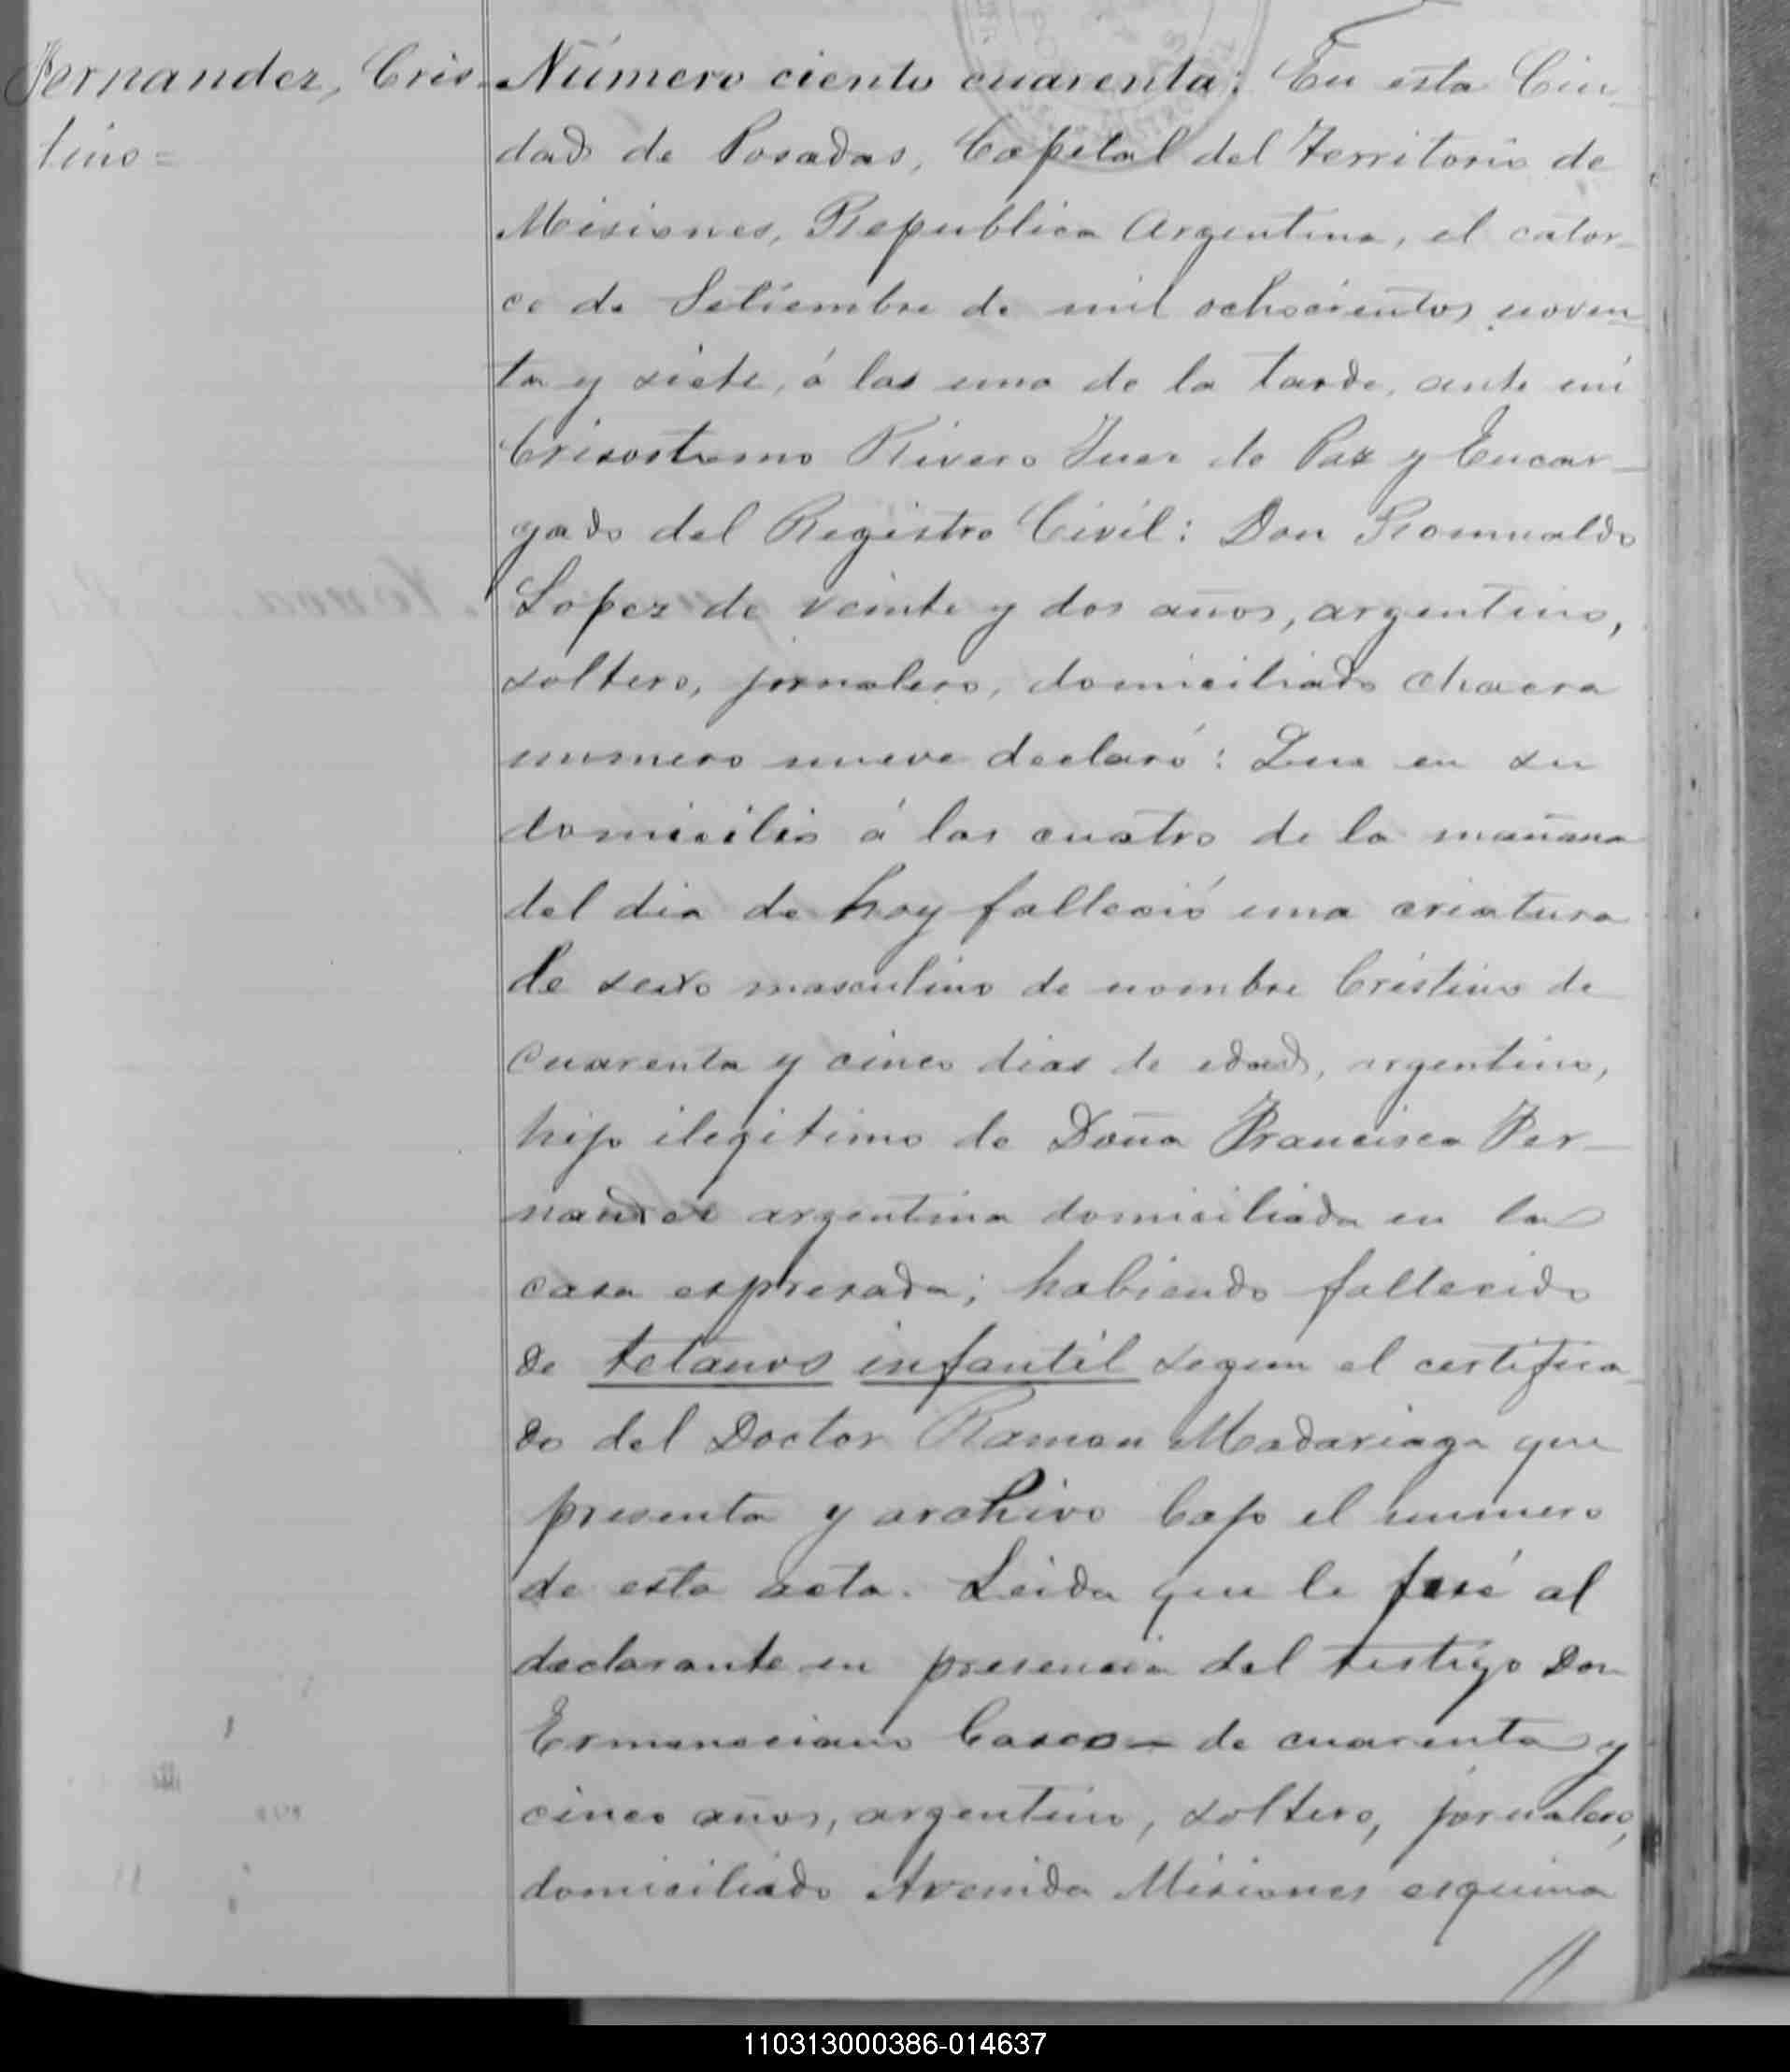 Fernandez, Cris-
tino=
Número ciento cuarenta: En esta Ciu-
dad de Posadas, Capital del Territorio de
Misiones, Republica Argentina, el cator-
ce de Setiembre de mil ochocientos noven-
ta y siete, á las una de la tarde, ante mi
Crisostomo Rivero Juez de Paz y Encar-
gado del Registro Civil: Don Romualdo
Lopez de veinte y dos años, argentino,
soltero, jornalero, domiciliado chacra
numero nueve declaró: Que en su
domicilio á las cuatro de la mañana
del dia de hoy falleció una criatura
de sexo masculino de nombre Cristino de
cuarenta y cinco dias de edad, argentino,
hijo ilegitimo de Doña Francisca Fer-
nandez argentina domiciliada en la
casa espresada; habiendo fallecido
de tetanos infantil segun el certifica-
do del Doctor Ramon Madariaga que
presenta y archivo bajo el numero
de esta acta. Leida que le fué al
declarante en presencia del testigo Don
Ermeneciano Casco - de cuarenta y
cinco años, argentino, soltero, jornalero,
domiciliado Avenida Misiones esquina
110313000386-014637